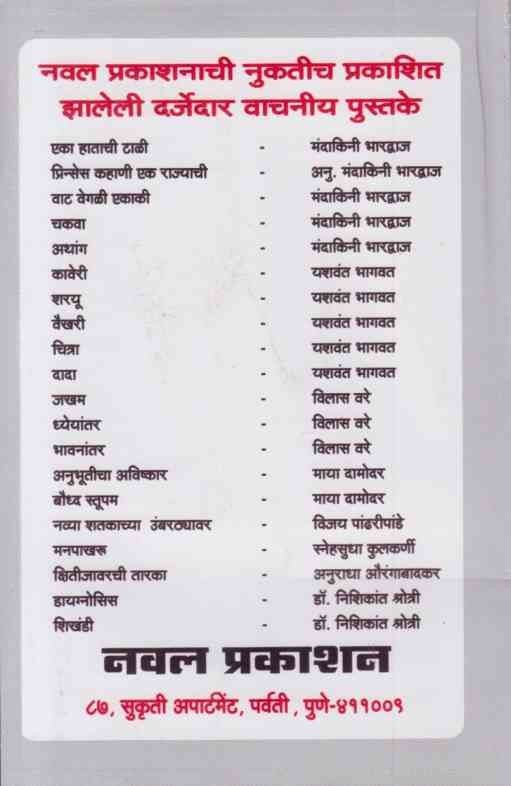 नवल प्रकाशनाची नुकतीच प्रकाशित
झालेली दर्जेदार वाचनीय पुस्तके
एका हाताची टाळी - मंदाकिनी भारद्वाज
प्रिन्सेस कहाणी एक राज्याची - अनु. मंदाकिनी भारद्वाज
वाट वेगळी एकाकी - मंदाकिनी भारद्वाज
चकवा - मंदाकिनी भारद्वाज
अथांग - मंदाकिनी भारद्वाज
कावेरी - यशवंत भागवत
शरयू - यशवंत भागवत
वैखरी - यशवंत भागवत
चित्रा - यशवंत भागवत
दादा - यशवंत भागवत
जखम - विलास वरे
ध्येयांतर - विलास वरे
भावनांतर - विलास वरे
अनुभूतीचा अविष्कार - माया दामोदर
बौध्द स्तूपम - माया दामोदर
नव्या शतकाच्या उंबरठ्यावर - विजय पांढरीपांडे
मनपाखरू - स्नेहसुधा कुलकर्णी
क्षितीजावरची तारका - अनुराधा औरंगाबादकर
डायग्नोसिस - डॉ. निशिकांत श्रोत्री
शिखंडी - डॉ. निशिकांत श्रोत्री
नवल प्रकाशन
८७, सुकृती अपार्टमेंट, पर्वती, पुणे-४११००९